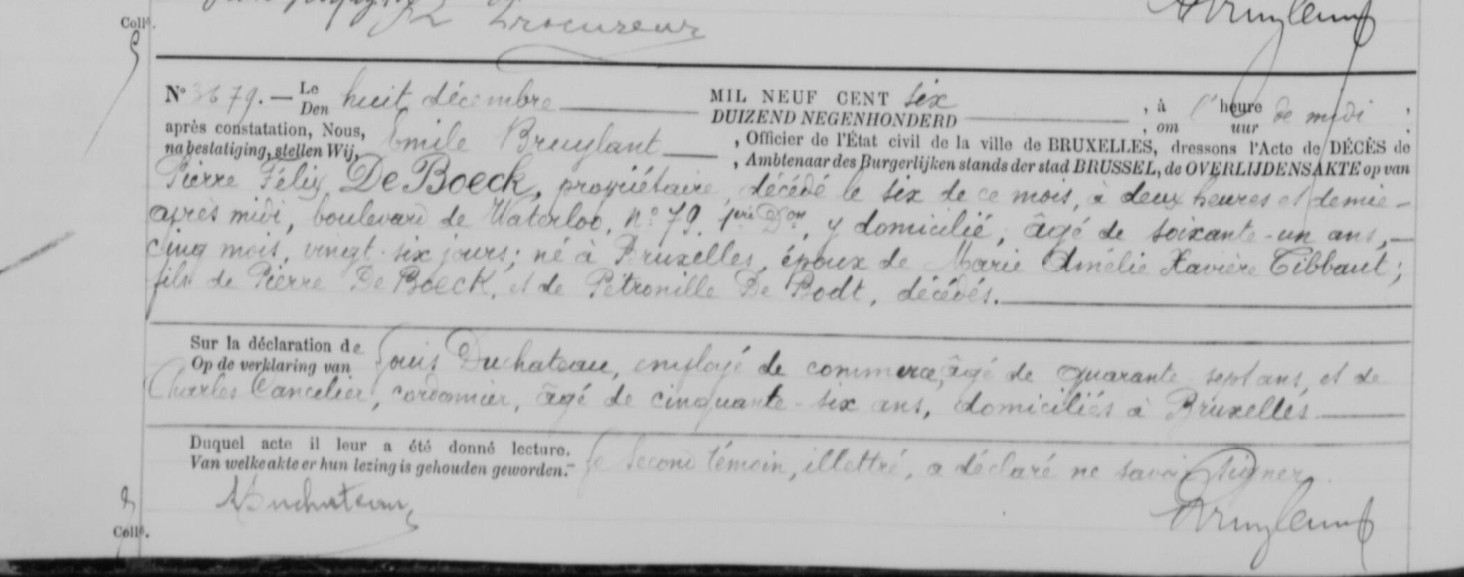 Procureur
Coll⁵.
N° 3679. — Le huit décembre MIL NEUF CENT six, à l'heure de midi,
Den DUIZEND NEGENHONDERD, om uur
après constatation, Nous, Emile Bruylant, Officier de l'État civil de la ville de BRUXELLES, dressons l'Acte de DÉCÈS de
na bestatiging, stellen Wij, , Ambtenaar des Burgerlijken stands der stad BRUSSEL, de OVERLIJDENSAKTE op van
Pierre Félix De Boeck, propriétaire, décédé le six de ce mois, à deux heures et demie
après midi, boulevard de Waterloo, n° 79, 1ère Don, y domicilié, âgé de soixante-un ans,
cinq mois, vingt-six jours; né à Bruxelles, époux de Marie Amélie Xavière Tibbaut;
fils de Pierre De Boeck, et de Pétronille De Bodt, décédés.
Sur la déclaration de Louis Duchateau, employé de commerce, âgé de quarante-sept ans, et de
Op de verklaring van
Charles Cancelier, cordonnier, âgé de cinquante-six ans, domiciliés à Bruxelles
Duquel acte il leur a été donné lecture. Le second témoin, illettré, a déclaré ne savoir signer.
Van welke akte er hun lezing is gehouden geworden.
Duchateau
Bruylant
Coll⁵.